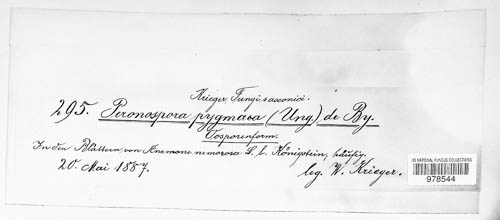 Krieger, Fungi saxonici.
295. Peronospora pygmaea (Ung.) de By.
Oosporenform.
In den Blättern von Anemone nemorosa L. b. Königstein, häufig.
20. Mai 1887.
leg. W. Krieger.
US NATIONAL FUNGUS COLLECTIONS
978544